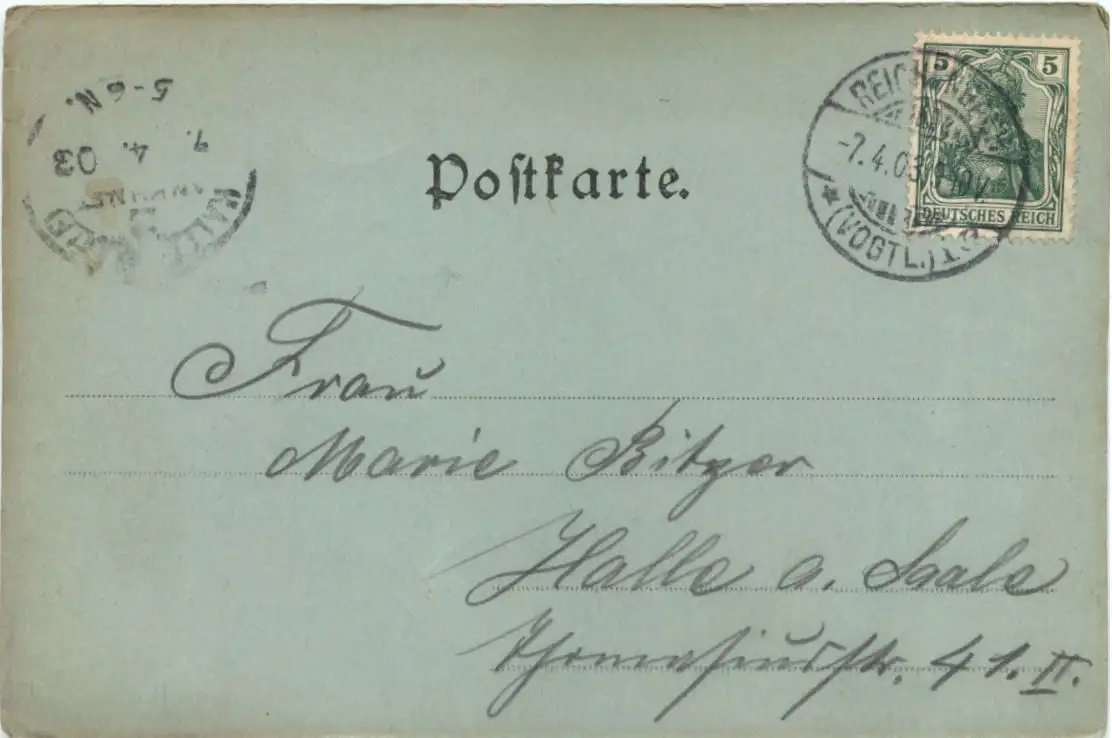 5 5
DEUTSCHES REICH
REICHENBACH
-7.4.03. 9-10V.
* (VOGTL.) 1
5-6N.
7. 4. 03
HALLE
Postkarte.
Frau
Marie Bitzer
Halle a. Saale
Thomasiusstr. 41. II.